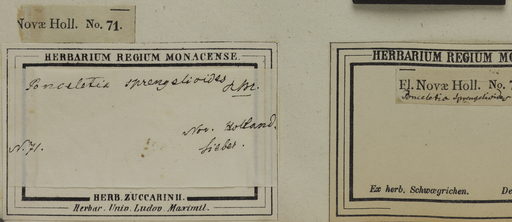 Novæ Holl. No. 71.
HERBARIUM REGIUM MONACENSE.
Ponceletia sprengelioides RBr.
Nov. Holland.
N. 71.
Sieber.
HERB. ZUCCARINII.
Herbar. Univ. Ludov. Maximil.
HERBARIUM REGIUM MO
Fl. Novæ Holl. No. 7
Ponceletia sprengelioides
Ex herb. Schwægrichen.
De